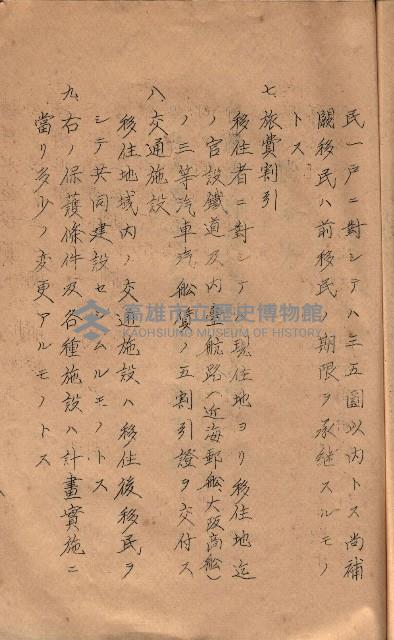 民一戸ニ對シテハ三五圓以内トス尚補
闕移民ハ前移民ノ期限ヲ承継スルモノ
トス
七、旅費割引
移住者ニ對シテ現住地ヨリ移住地迄
ノ官設鐵道及内臺航路(近海郵船、大阪商船)
ノ三等汽車汽船賃ノ五割引證ヲ交付ス
八、交通施設
移住地域内ノ交通施設ハ移住後移民ヲ
シテ共同建設セシムルモノトス
九、右ノ保護條件及各種施設ハ計畫實施ニ
當リ多少ノ変更アルモノトス
高雄市立歷史博物館
KAOHSIUNG MUSEUM OF HISTORY